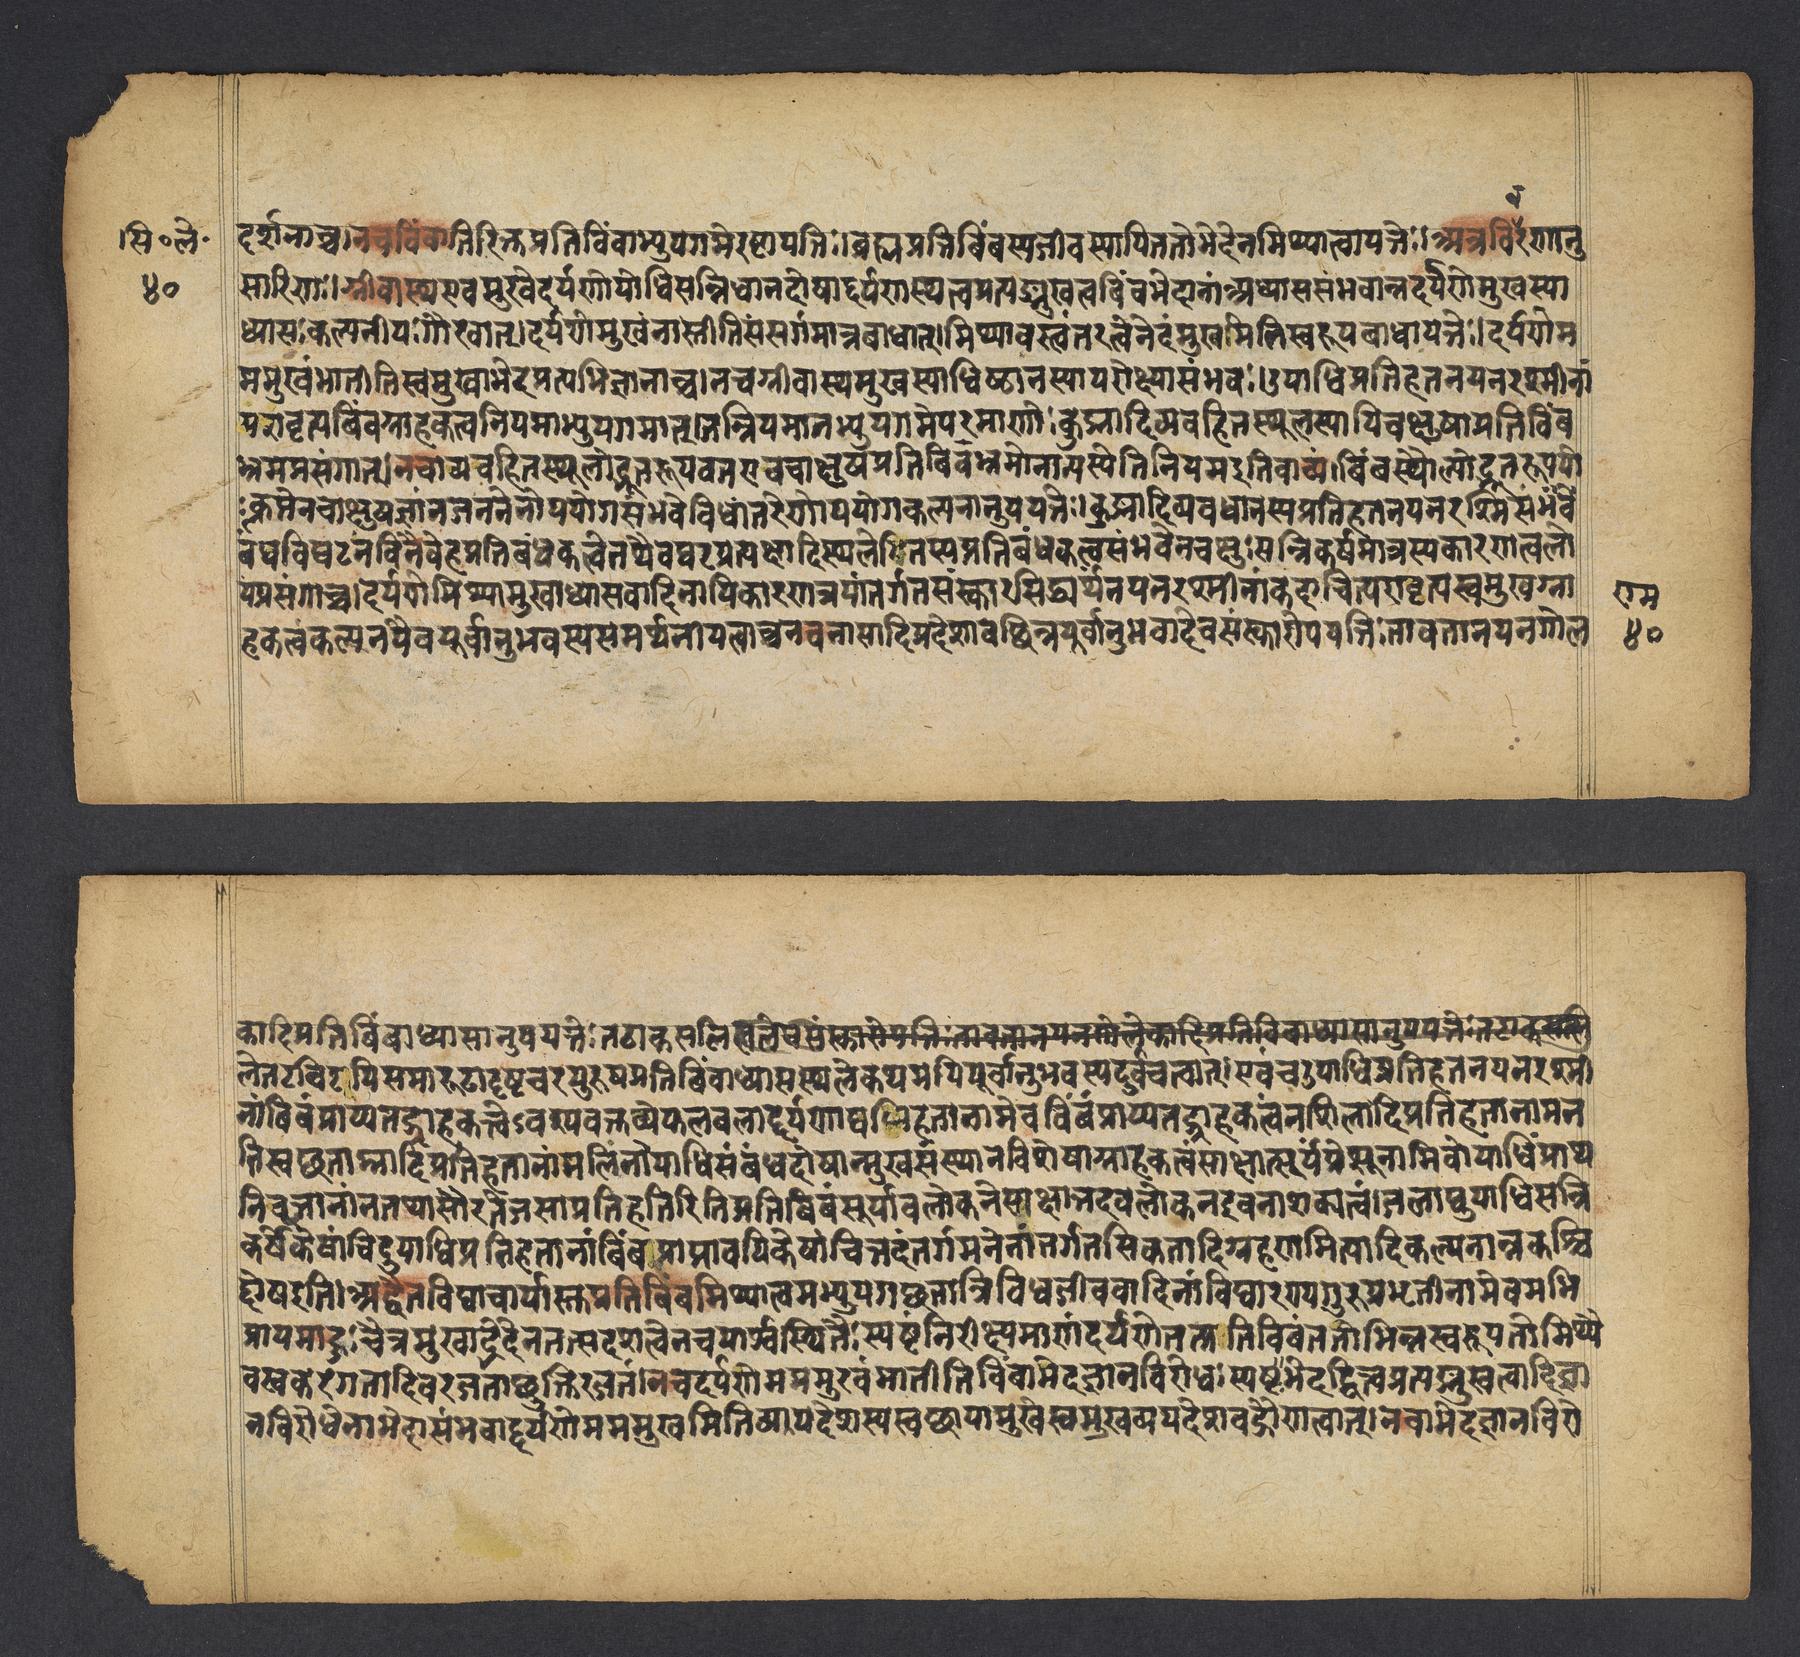 ।सि॰ले॰
४०
व
दर्शनाच्च।नचबिंबातिरिक्तप्रतिबिंबाभ्युपगमेइष्टापत्तिः।ब्रह्मप्रतिबिंबस्यजीवस्यापिततोभेदेनमिथ्यात्वापत्तेः।अत्रविरणानु
सारिणः।ग्रीवास्थएवमुखेदर्पणोपाधिसन्निधानदोषाद्दर्पणस्थत्वप्रत्यङ्मुखत्वबिंबभेदानांअध्याससंभवान्नदर्पणेमुखस्या
ध्यासःकल्पनीयःगौरवात्।दर्पणेमुखंनास्तीतिसंसर्गमात्रबाधात्।मिथ्यावस्त्वंतरत्वेनेदंमुखमितिस्वरूपबाधापत्तेः।दर्पणेम
ममुखंभातीतिस्वमुखाभेदप्रत्यभिज्ञानाच्च।नचग्रीवास्थमुखस्याधिष्ठानस्यापरोक्ष्यासंभवः।उपाधिप्रतिहतनयनरश्मीनां
परावृत्यबिंबग्राहकत्वनियमाभ्युपगमात्।तन्नियमानभ्युपगमेपरमाणोःकुड्यादिव्यवहितस्थूलस्यापिचक्षुषाप्रतिबिंब
भ्रमप्रसंगात्।नचाव्यवहितस्थूलोद्भूतरूपवतएवचाक्षुषप्रतिबिंबभ्रमोनान्यस्येतिनियमइतिवाच्यं।बिंबस्थौल्योद्भूतरूपयो
ःक्रमेनचाक्षुषज्ञानजननेनोपयोगसंभवेविधांतरेणोपयोगकल्पनानुपपत्तेः।कुड्यादिव्यवधानस्यप्रतिहतनयनरश्मिसंभवे
बंघविघटनंविनैवेहप्रतिबंधकत्वेतथैवघटप्रत्यक्षादिस्थलेपितस्यप्रतिबंधकत्वसंभवेनचक्षुःसन्निकर्षमात्रस्यकारणत्वलो
पप्रसंगाच्च।दर्पणेमिथ्यामुखाध्यासवादिनापिकारणत्रयांतर्गतसंस्कारसिद्ध्यर्थंनयनरश्मीनांकदाचित्परावृत्यस्वमुखग्रा
हकत्वंकल्पनयैवपूर्वानुभवस्यसमर्थनीयत्वाच्चनचनासादिप्रदेशावच्छिन्नपूर्वानुभवादेवसंस्कारोपपत्तिःतावतानयनगोल
राम
४०
कादिप्रतिबिंबाध्यासानुपपत्तेःतटाकसलि
लेतटविटपिसमारूढादृष्टचरपुरुषप्रतिबिंबाध्यासस्थलेकथमपिपूर्वानुभवस्यदुर्वचत्वात्।एवंचउपाधिप्रतिहतनयनरश्मी
नांबिंबंप्राप्यतद्ग्राहकत्वेऽवश्यवक्तव्येफलबलाद्दर्पणाद्यभिहतानामेवबिंबंप्राप्यतद्ग्राहकत्वंनशिलादिप्रतिहतानामन
तिस्वच्छताम्रादिप्रतिहतानांमलिनोपाधिसंबंधदोषान्मुखसंस्थानविशेषाग्राहकत्वंसाक्षात्सूर्यंप्रेप्सूनामिवोपाधिंप्राप्य
निवृत्तानांनतथासौरतेजसाप्रतिहतिरितिप्रतिबिंबसूर्यावलोकनेसाक्षात्तदवलोकनइवनाशक्यत्वं।जलाद्युपाधिसन्नि
कर्षेकेषांचिदुपाधिप्रतिहतानांबिंबप्राप्तावपिकेषांचित्तदंतर्गमनेनांतर्गतसिकतादिग्रहणमित्यादिकल्पनान्नकश्चि
द्दोषइति।अद्वैतविद्याचार्यास्तुप्रतिबिंबमिथ्यात्वमभ्युपगच्छतांत्रिविधजीववादिनांविद्यारण्यगुरुप्रभृतीनामेवमभि
प्रायमाहुःचैत्रमुखाद्भेदेनतत्सदृशत्वेनचपार्श्वस्थितैःस्पष्टंनिरीक्ष्यमाणंदर्पणेतत्प्रतिबिंबंततोभिन्नस्वरूपतोमिथ्यै
वस्वकरगतादिवरजताच्छुक्तिरजतं।नचदर्पणेममप्रमुखंभातीतिबिंबाभेदज्ञानविरोधःस्पष्टभेदद्वित्वप्रत्यङ्मुखत्वादिज्ञा
नविरोधेनाभेदासंभवाद्दर्पणेमममुखमितिव्यपदेशस्यस्वच्छायामुखेस्वमुखव्यपदेशवद्गौणत्वात्।नचाभेदज्ञानविरो